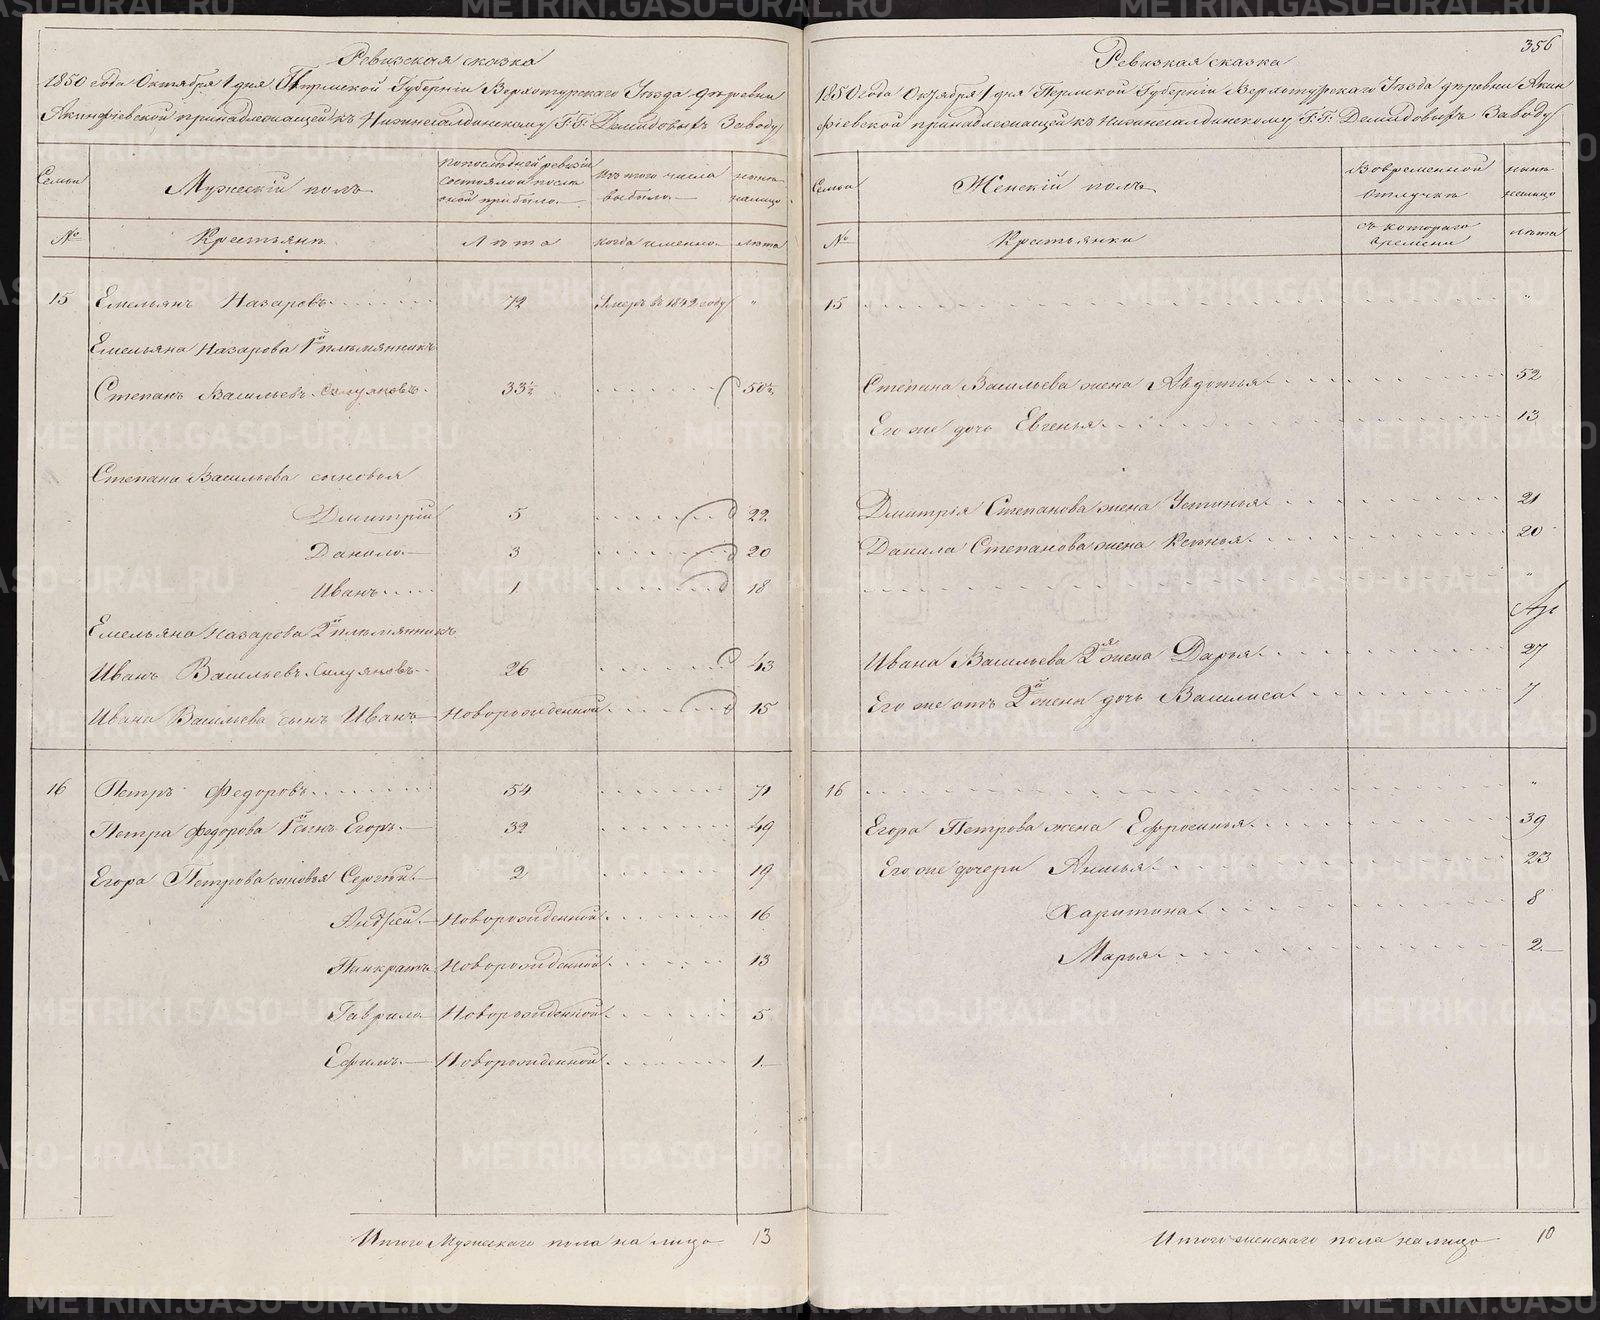 Ревизская сказка
1850 года Октября 1 дня Пермской Губернiи Верхотурскаго Уѣзда деревни
Акинфiевской принадлежащей къ Нижнесалдинскому Г.Г. Демидовыхъ Заводу
Семьи
Мужескiй полъ
по последней ревизiи
состояло и после
оной прибыло.
Изъ того числа
выбыло.
нынѣ
налицо.
№
Крестьяне
Лѣта
когда именно.
лѣта
15 Емельянъ Назаровъ 72 Умеръ въ 1842 году "
Емельяна Назарова 1й племянникъ
Степанъ Васильевъ Силуяновъ. 33½ 50½
Степана Васильева сыновья
Дмитрiй 5 22
Данило 3 20
Иванъ 1 18
Емельяна Назарова 2й племянникъ
Иванъ Васильевъ Силуяновъ 26 43
Ивана Васильева сынъ Иванъ Новорожденной 15
16 Петръ Федоровъ 54 71
Петра Федорова 1й сынъ Егоръ. 32 49
Егора Петрова сыновья Сергѣй. 2 19
Андрей. Новорожденной 16
Панкратъ Новорожденной 13
Гаврило Новорожденной 5
Ефимъ. Новорожденной 1
Итого Мужескаго пола на лицо 13
356
Ревизкая сказка
1850 года Октября 1 дня Пермской Губернiи Верхотурскаго Уѣзда деревни Акин
фiевской принадлежащей къ Нижнесалдинскому Г.Г. Демидовыхъ Заводу
Семьи
Женскiй полъ
Вовременной
отлучкѣ
нынѣ
налицо
№
Крестьянки
съ котораго
времени
лѣта
15 "
Степана Васильева жена Авдотья 52
Его же дочь Евгенья 13
Дмитрiя Степанова жена Устинья 21
Данила Степанова жена Ксенья 20
"
Ивана Васильева 2я жена Дарья 27
Его же отъ 2й жены дочь Василиса 7
16 "
Егора Петрова жена Ефросинья 39
Его же дочери Анисья 23
Харитина 8
Марья 2
Итого женскаго пола налицо 10
METRIKI.GASO-URAL.RU